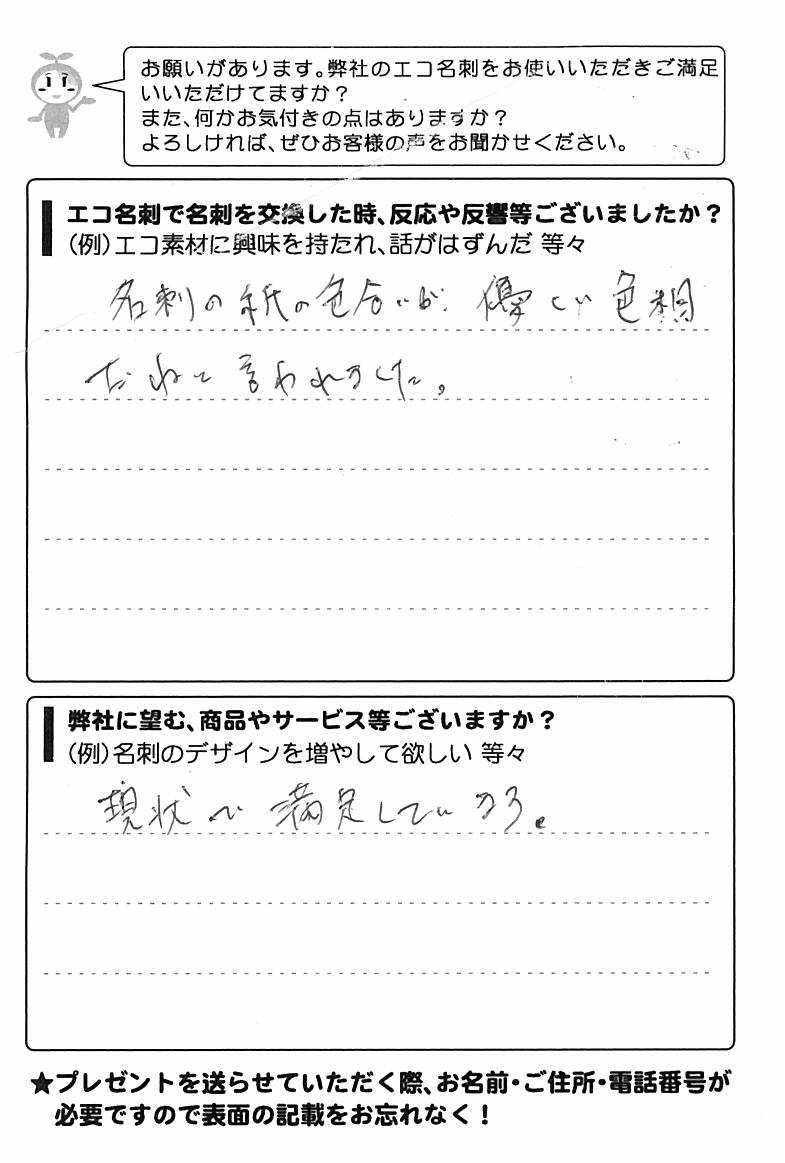 お願いがあります。弊社のエコ名刺をお使いいただきご満足
いいただけてますか？
また、何かお気付きの点はありますか？
よろしければ、ぜひお客様の声をお聞かせください。
エコ名刺で名刺を交換した時、反応や反響等ございましたか？
（例）エコ素材に興味を持たれ、話がはずんだ 等々
名刺の紙の色合いが 優しい色相
だねと言われました。
弊社に望む、商品やサービス等ございますか？
（例）名刺のデザインを増やして欲しい 等々
現状で満足しています。
★プレゼントを送らせていただく際、お名前・ご住所・電話番号が
必要ですので表面の記載をお忘れなく！